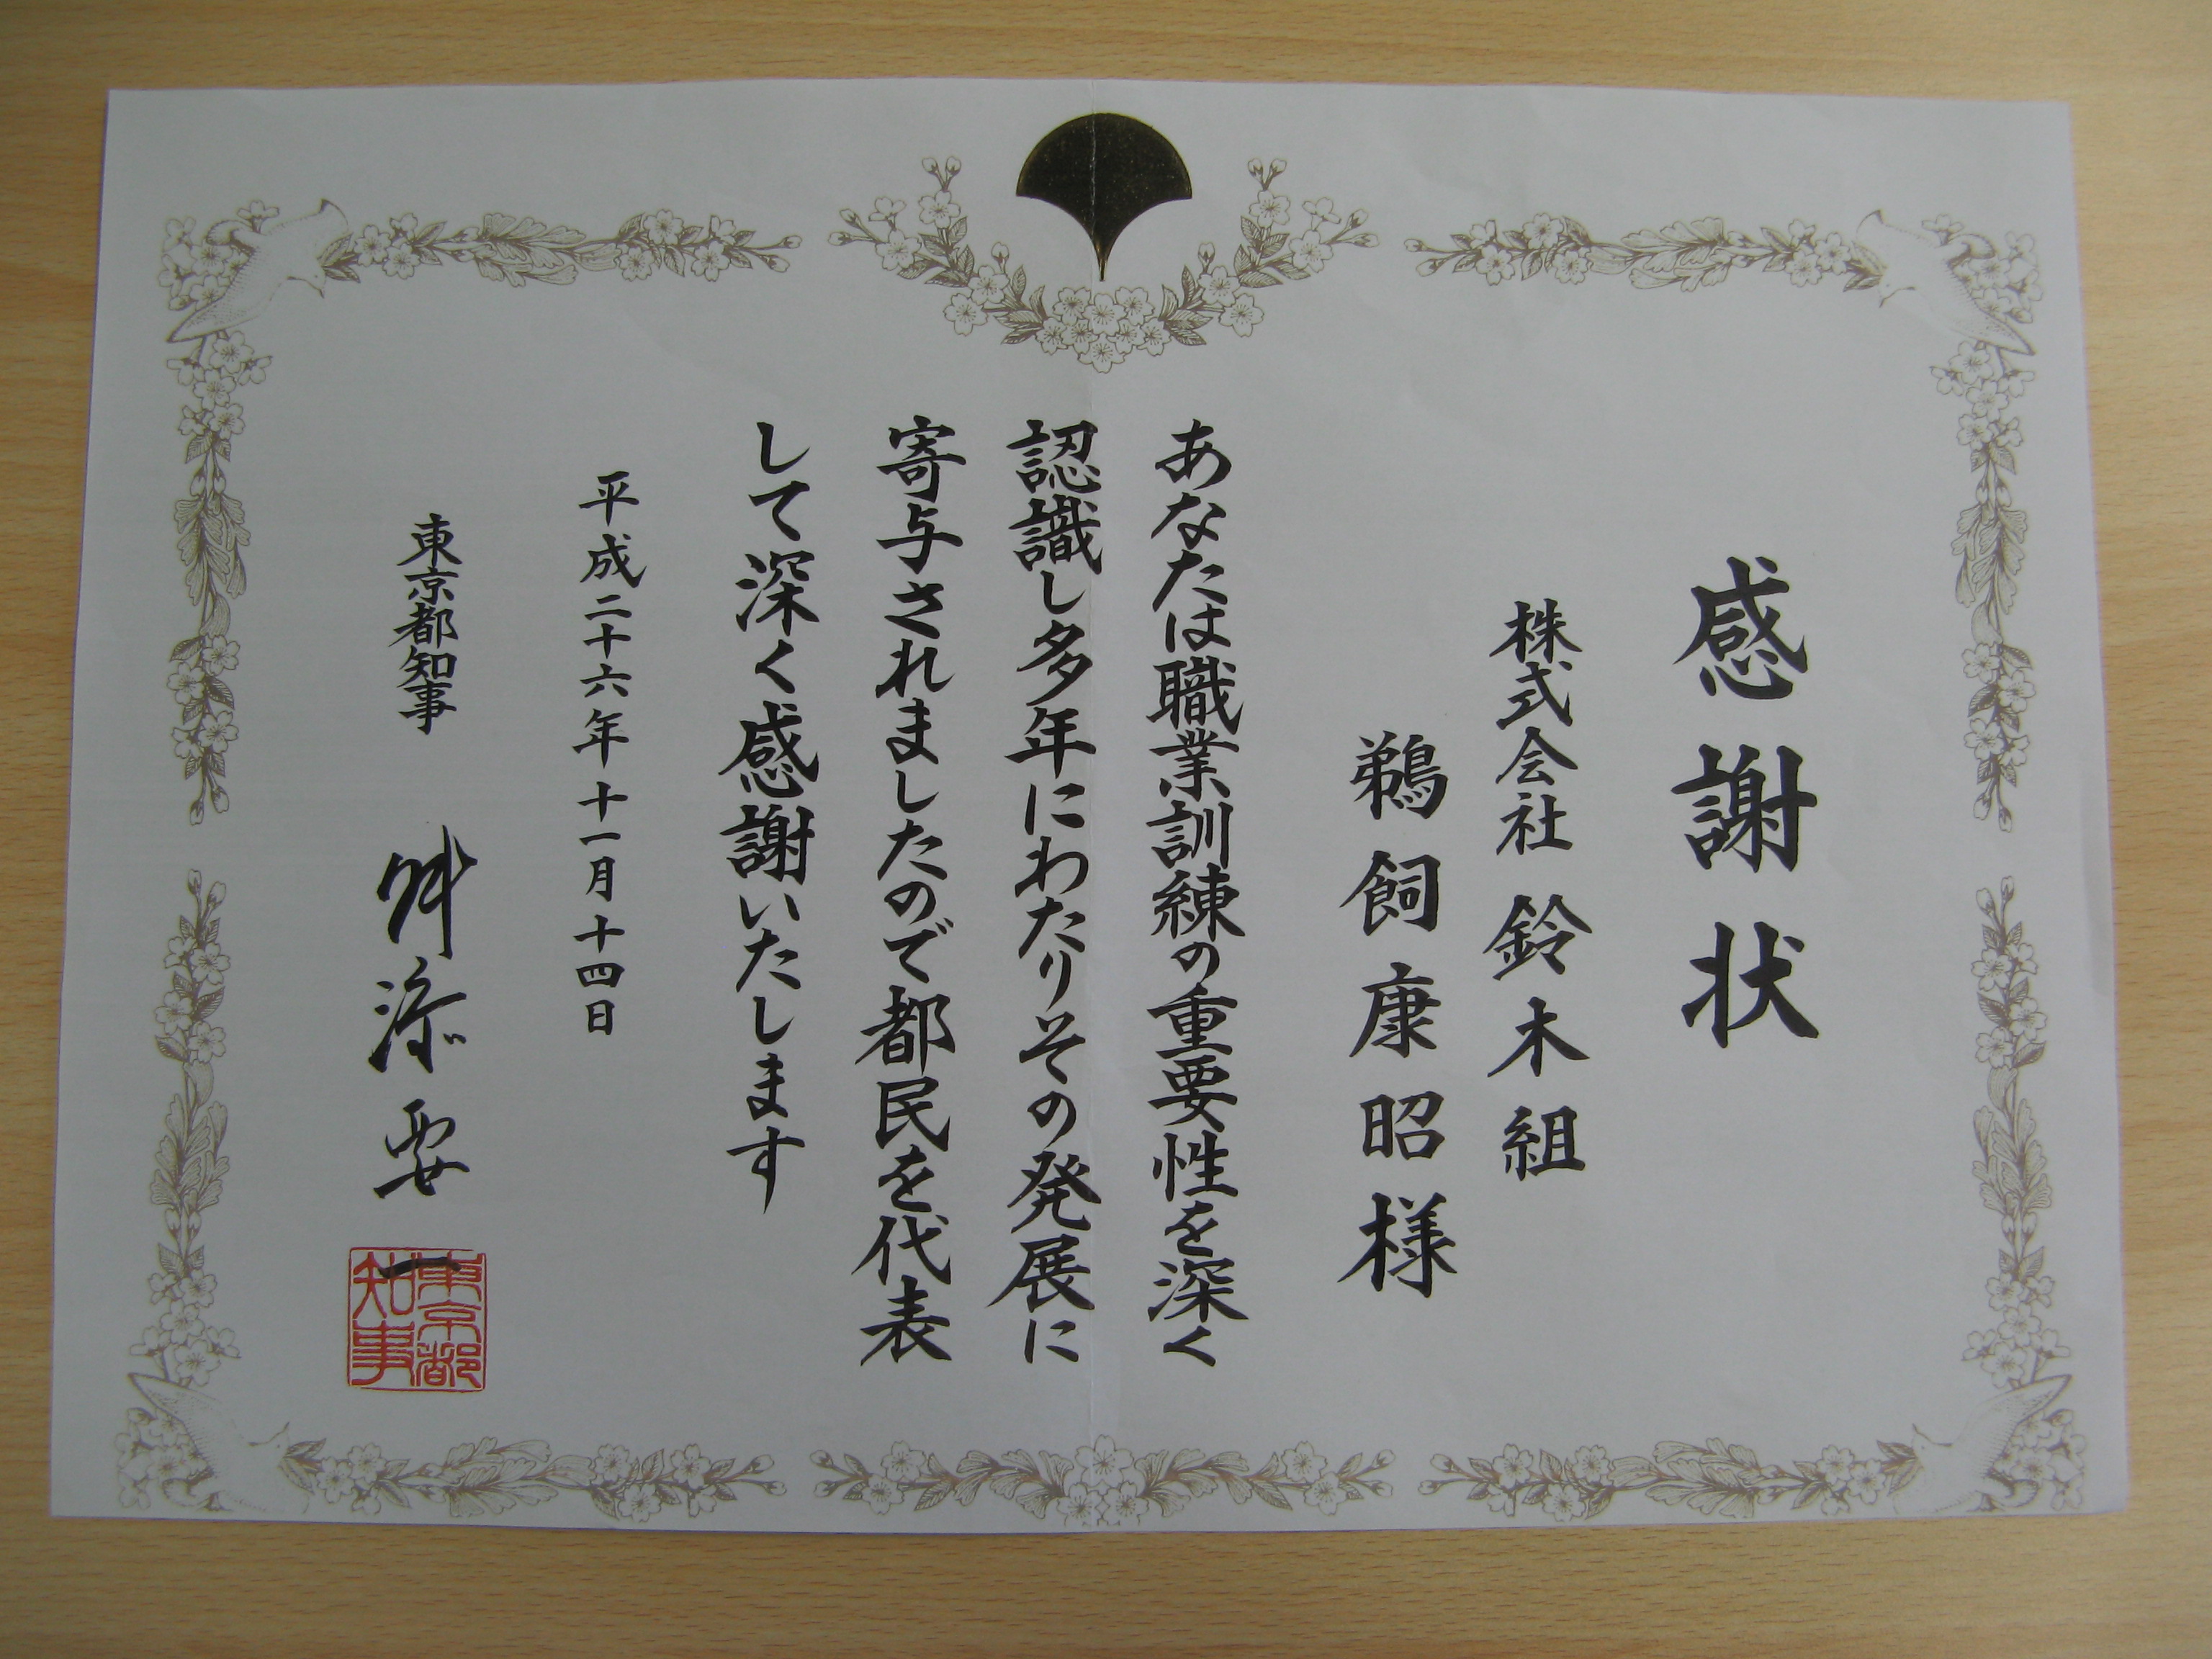 感謝状
株式会社 鈴木組
鵜飼康昭様
あなたは職業訓練の重要性を深く
認識し多年にわたりその発展に
寄与されましたので都民を代表
して深く感謝いたします
平成二十六年十一月十四日
東京都知事 舛添要一
東京都
知事